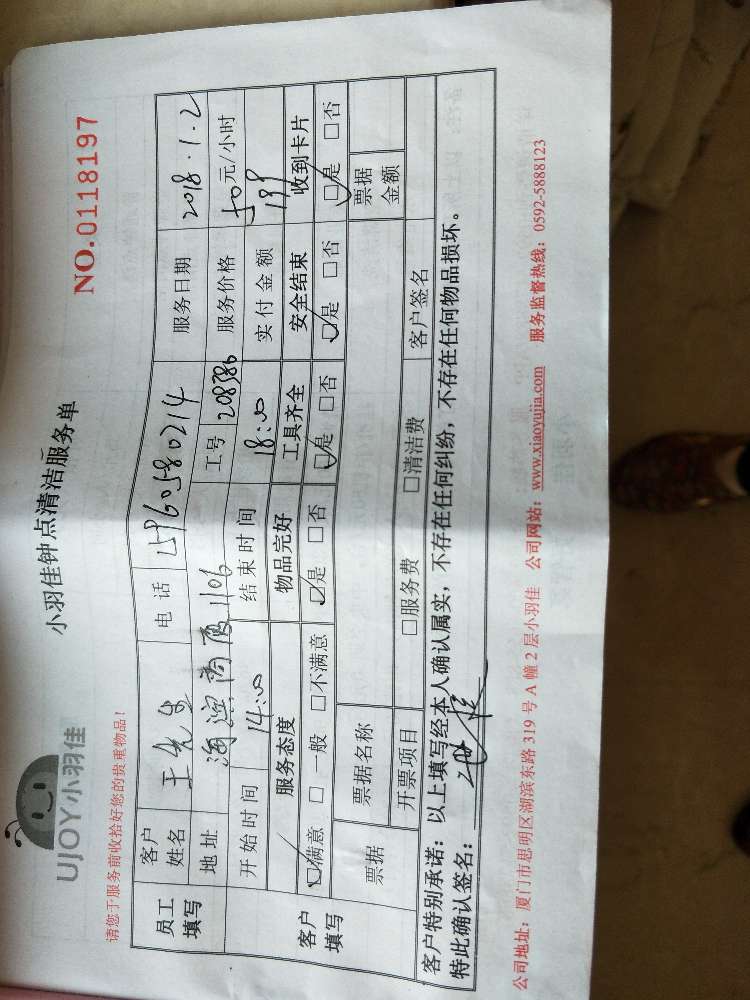 UJOY小羽佳
小羽佳钟点清洁服务单
NO.0118197
请您于服务前收拾好您的贵重物品！
员工填写 客户姓名 王先生 电话 15960580214 服务日期 2018.1.2
地址 海滨 1106 工号 208386 服务价格 50元/小时
开始时间 14:00 结束时间 18:00 实付金额 199
客户填写 服务态度 物品完好 工具齐全 安全结束 收到卡片
☑满意 □一般 □不满意 ☑是 □否 ☑是 □否 ☑是 □否 ☑是 □否
票据 票据名称 票据金额
开票项目 □服务费 □清洁费 客户签名
客户特别承诺：以上填写经本人确认属实，不存在任何纠纷，不存在任何物品损坏。
特此确认签名：
公司地址：厦门市思明区湖滨东路319号A幢2层小羽佳 公司网站：www.xiaoyujia.com 服务监督热线：0592-5888123